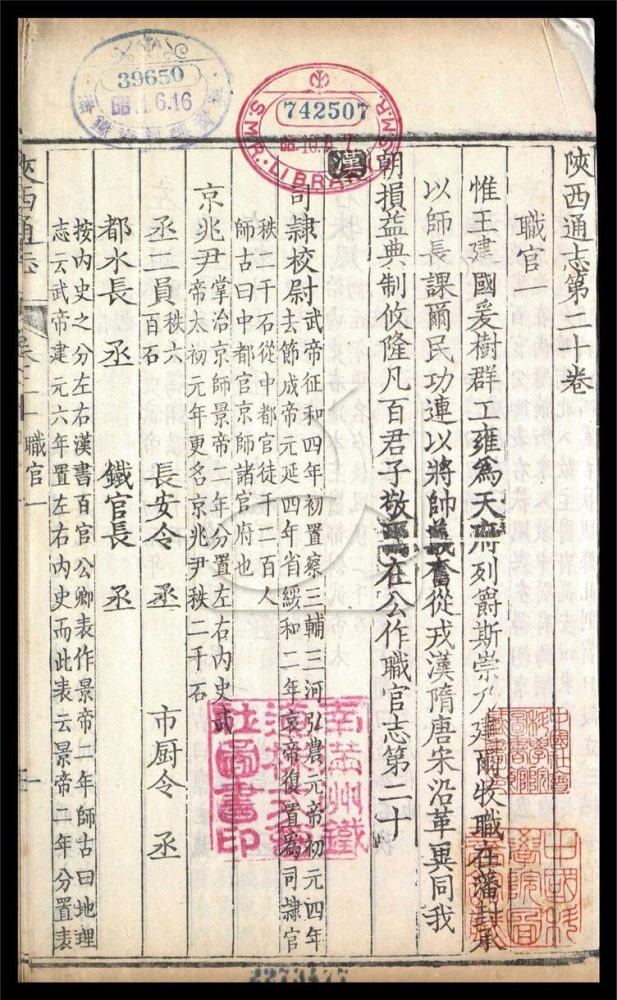 39650
6.16
742507
S.M.R. LIBRARY S.M.R.
陝西通志第卷
職官一
惟王建國爰樹群工雍為天府列爵斯崇乃建爾牧職在藩封承
以師長課爾民功連以將帥義奮從戎漢隋唐宋沿革異同我
朝損益典制攸隆凡百君子敬在公作職官志第二十
漢
司隸校尉
武帝征和四年初置察三輔三河弘農元帝初元四年
去節成帝元延四年省綏和二年哀帝復置為司隸官
秩二千石從中都官徒千二百人
師古曰中都官京師諸官府也
京兆尹
掌治京師景帝二年分置左右內史武
帝太初元年更名京兆尹秩二千石
丞二員 秩六百石 長安令 丞 市厨令 丞
都水長 丞 鐵官長 丞
按內史之分左右漢書百官公卿表作景帝二年師古曰地理
志云武帝建元六年置左右內史而此表云景帝二年分置表
陝西通志 職官一
南滿州鐵
道株式會
社圖書印
2273477